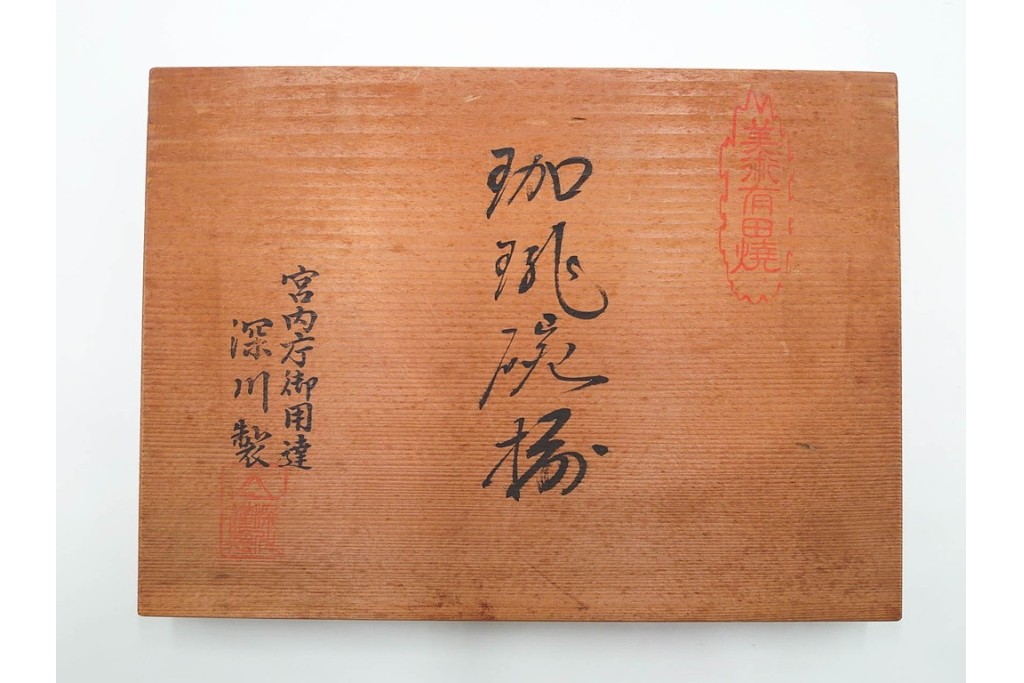 美術有田燒
珈琲碗揃
宮内庁御用達
深川製